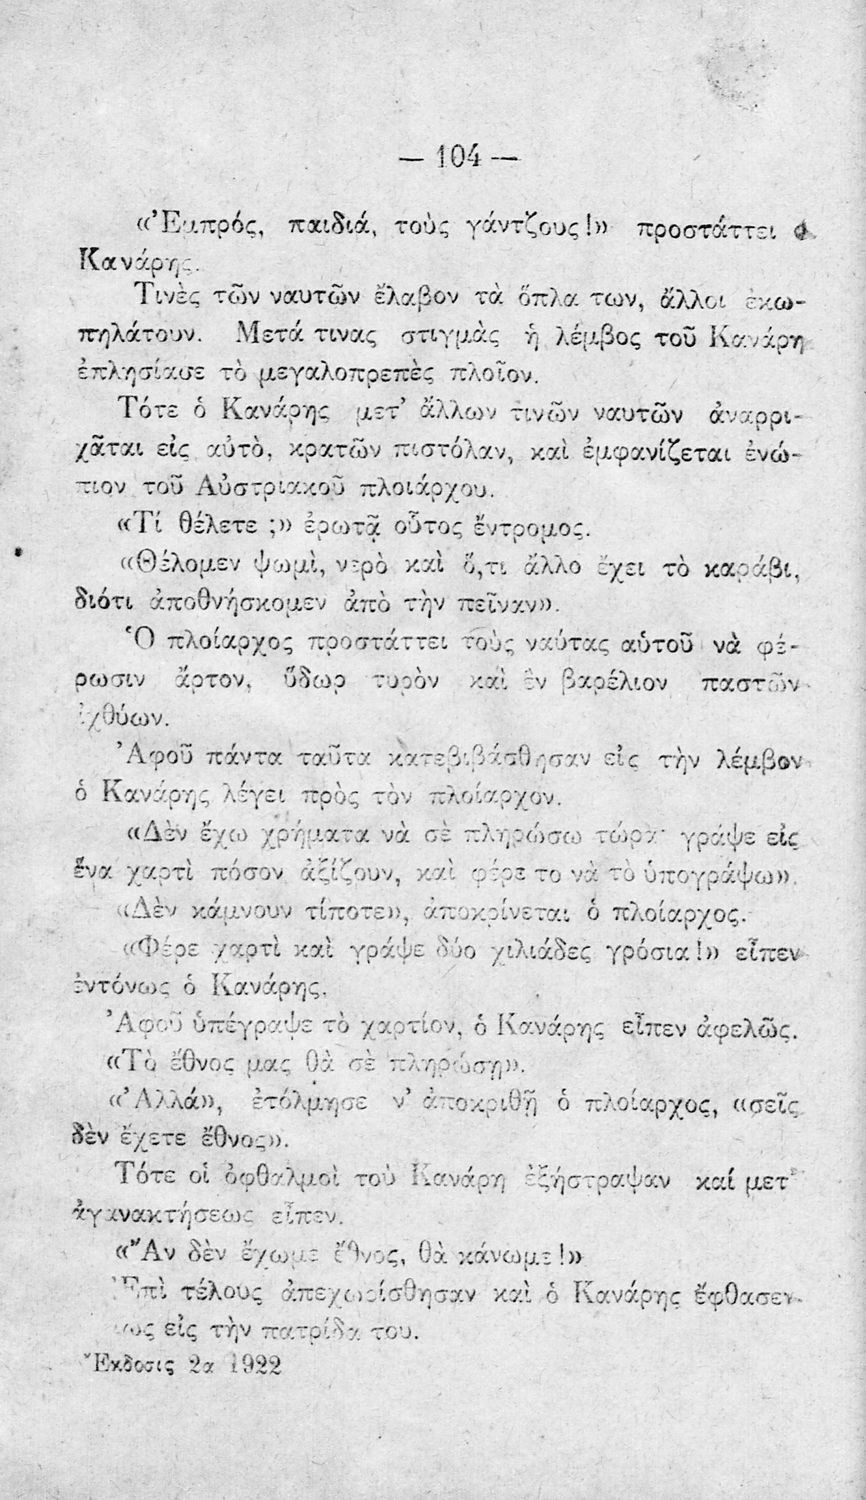 — 104 —
«Ἐμπρός, παιδιά, τοὺς γάντζους!» προστάττει ὁ
Κανάρης.
Τινὲς τῶν ναυτῶν ἔλαβον τὰ ὅπλα των, ἄλλοι ἐκω-
πηλάτουν. Μετά τινας στιγμὰς ἡ λέμβος τοῦ Κανάρη
ἐπλησίασε τὸ μεγαλοπρεπὲς πλοῖον.
Τότε ὁ Κανάρης μετ' ἄλλων τινῶν ναυτῶν ἀναρρι-
χᾶται εἰς αὐτὸ, κρατῶν πιστόλαν, καὶ ἐμφανίζεται ἐνώ-
πιον τοῦ Αὐστριακοῦ πλοιάρχου.
«Τί θέλετε ;» ἐρωτᾷ οὗτος ἔντρομος.
«Θέλομεν ψωμὶ, νερὸ καὶ ὅ,τι ἄλλο ἔχει τὸ καράβι,
διότι ἀποθνήσκομεν ἀπὸ τὴν πεῖναν».
Ὁ πλοίαρχος προστάττει τοὺς ναύτας αὑτοῦ νὰ φέ-
ρωσιν ἄρτον, ὕδωρ τυρὸν καὶ ἓν βαρέλιον παστῶν
ἰχθύων.
Ἀφοῦ πάντα ταῦτα κατεβιβάσθησαν εἰς τὴν λέμβον
ὁ Κανάρης λέγει πρὸς τὸν πλοίαρχον.
«Δὲν ἔχω χρήματα νὰ σὲ πληρώσω τώρα· γράψε εἰς
ἕνα χαρτὶ πόσον ἀξίζουν, καὶ φέρε το νὰ τὸ ὑπογράψω».
«Δὲν κάμνουν τίποτε», ἀποκρίνεται ὁ πλοίαρχος.
«Φέρε χαρτὶ καὶ γράψε δύο χιλιάδες γρόσια!» εἶπεν
ἐντόνως ὁ Κανάρης.
Ἀφοῦ ὑπέγραψε τὸ χαρτίον, ὁ Κανάρης εἶπεν ἀφελῶς.
«Τὸ ἔθνος μας θὰ σὲ πληρώσῃ».
«Ἀλλά», ἐτόλμησε ν' ἀποκριθῇ ὁ πλοίαρχος, «σεῖς
δὲν ἔχετε ἔθνος».
Τότε οἱ ὀφθαλμοὶ τοῦ Κανάρη ἐξήστραψαν καί μετ'
ἀγανακτήσεως εἶπεν.
«Ἂν δὲν ἔχωμε ἔθνος, θὰ κάνωμε!»
Ἐπὶ τέλους ἀπεχωρίσθησαν καὶ ὁ Κανάρης ἔφθασεν
εἰς τὴν πατρίδα του.
Ἔκδοσις 2α 1922